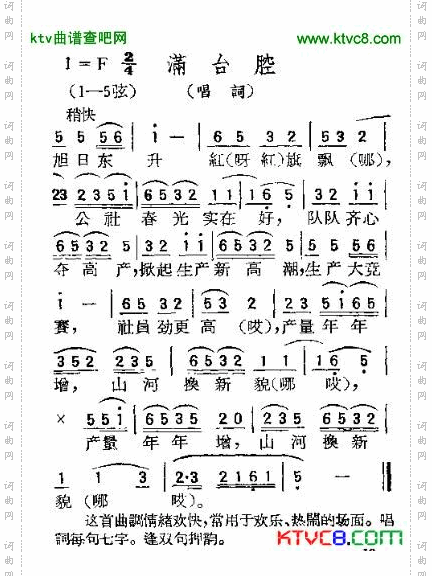 ktv曲谱查吧网
www.ktvc8.com
1=F 2/4 滿台腔
(1—5弦) (唱詞)
稍快
5 5 56 | i — | 65 32 | 532 2 |
旭日东 升 紅(呀紅)旗 飘(哪),
23 235i | 6532 11 | 165 1 | 33 ii |
公社 春光实在 好, 队队齐心
653 5 | 32 ii | 6532 11 | 55 56 |
夺高产,掀起生产新高 潮,生产大竞
i — | 65 32 | 53 2 | 235 i65 |
賽, 社員劲更高(哎),产量年年
352 235 | i65 3532 | 1 1 | 1 65 |
增, 山河換新 貌(哪 哎),
× 55i | 6535 20 | 235 i65 | 3532
产量 年年 增,山河換新
1 1 3 | 2·3 2161 | 5 — ‖
貌(哪 哎)。
这首曲調情緒欢快,常用于欢乐、热鬧的场面。唱
詞每句七字。逢双句押韵。
KTVC8.com
词曲网